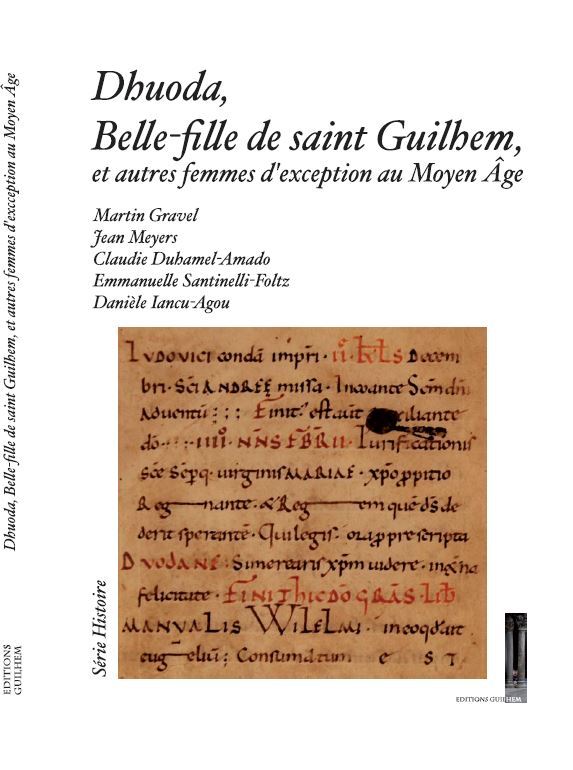 Dhuoda, Belle-fille de saint Guilhem, et autres femmes d'excception au Moyen Âge
EDITIONS
GUILHEM
Dhuoda,
Belle-fille de saint Guilhem,
et autres femmes d'exception au Moyen Âge
Martin Gravel
Jean Meyers
Claudie Duhamel-Amado
Emmanuelle Santinelli-Foltz
Danièle Iancu-Agou
LVDOVICI condā impri· ii· kls Decem
bri· Sci ANDREĘ missa· Incoante Scm dn̄i
Adventū : : : Finit· est aut iliante
dō· · · · iiii· NNS FBRII· Purificationis
scē Sēpq· virginis MARIAE· xpō ppitio
Reg nante· & Reg em quē dS de
derit sperantē· Qui legis· ora p prescripta
DVODANE· Si merearis xpm videre· in
felicitate· FINIT HIC DŌ GRĀS· LIB
MANVALIS WILELMI· in eoqđ
eug eliū; Consummatum e S T,
Série Histoire
EDITIONS GUILHEM